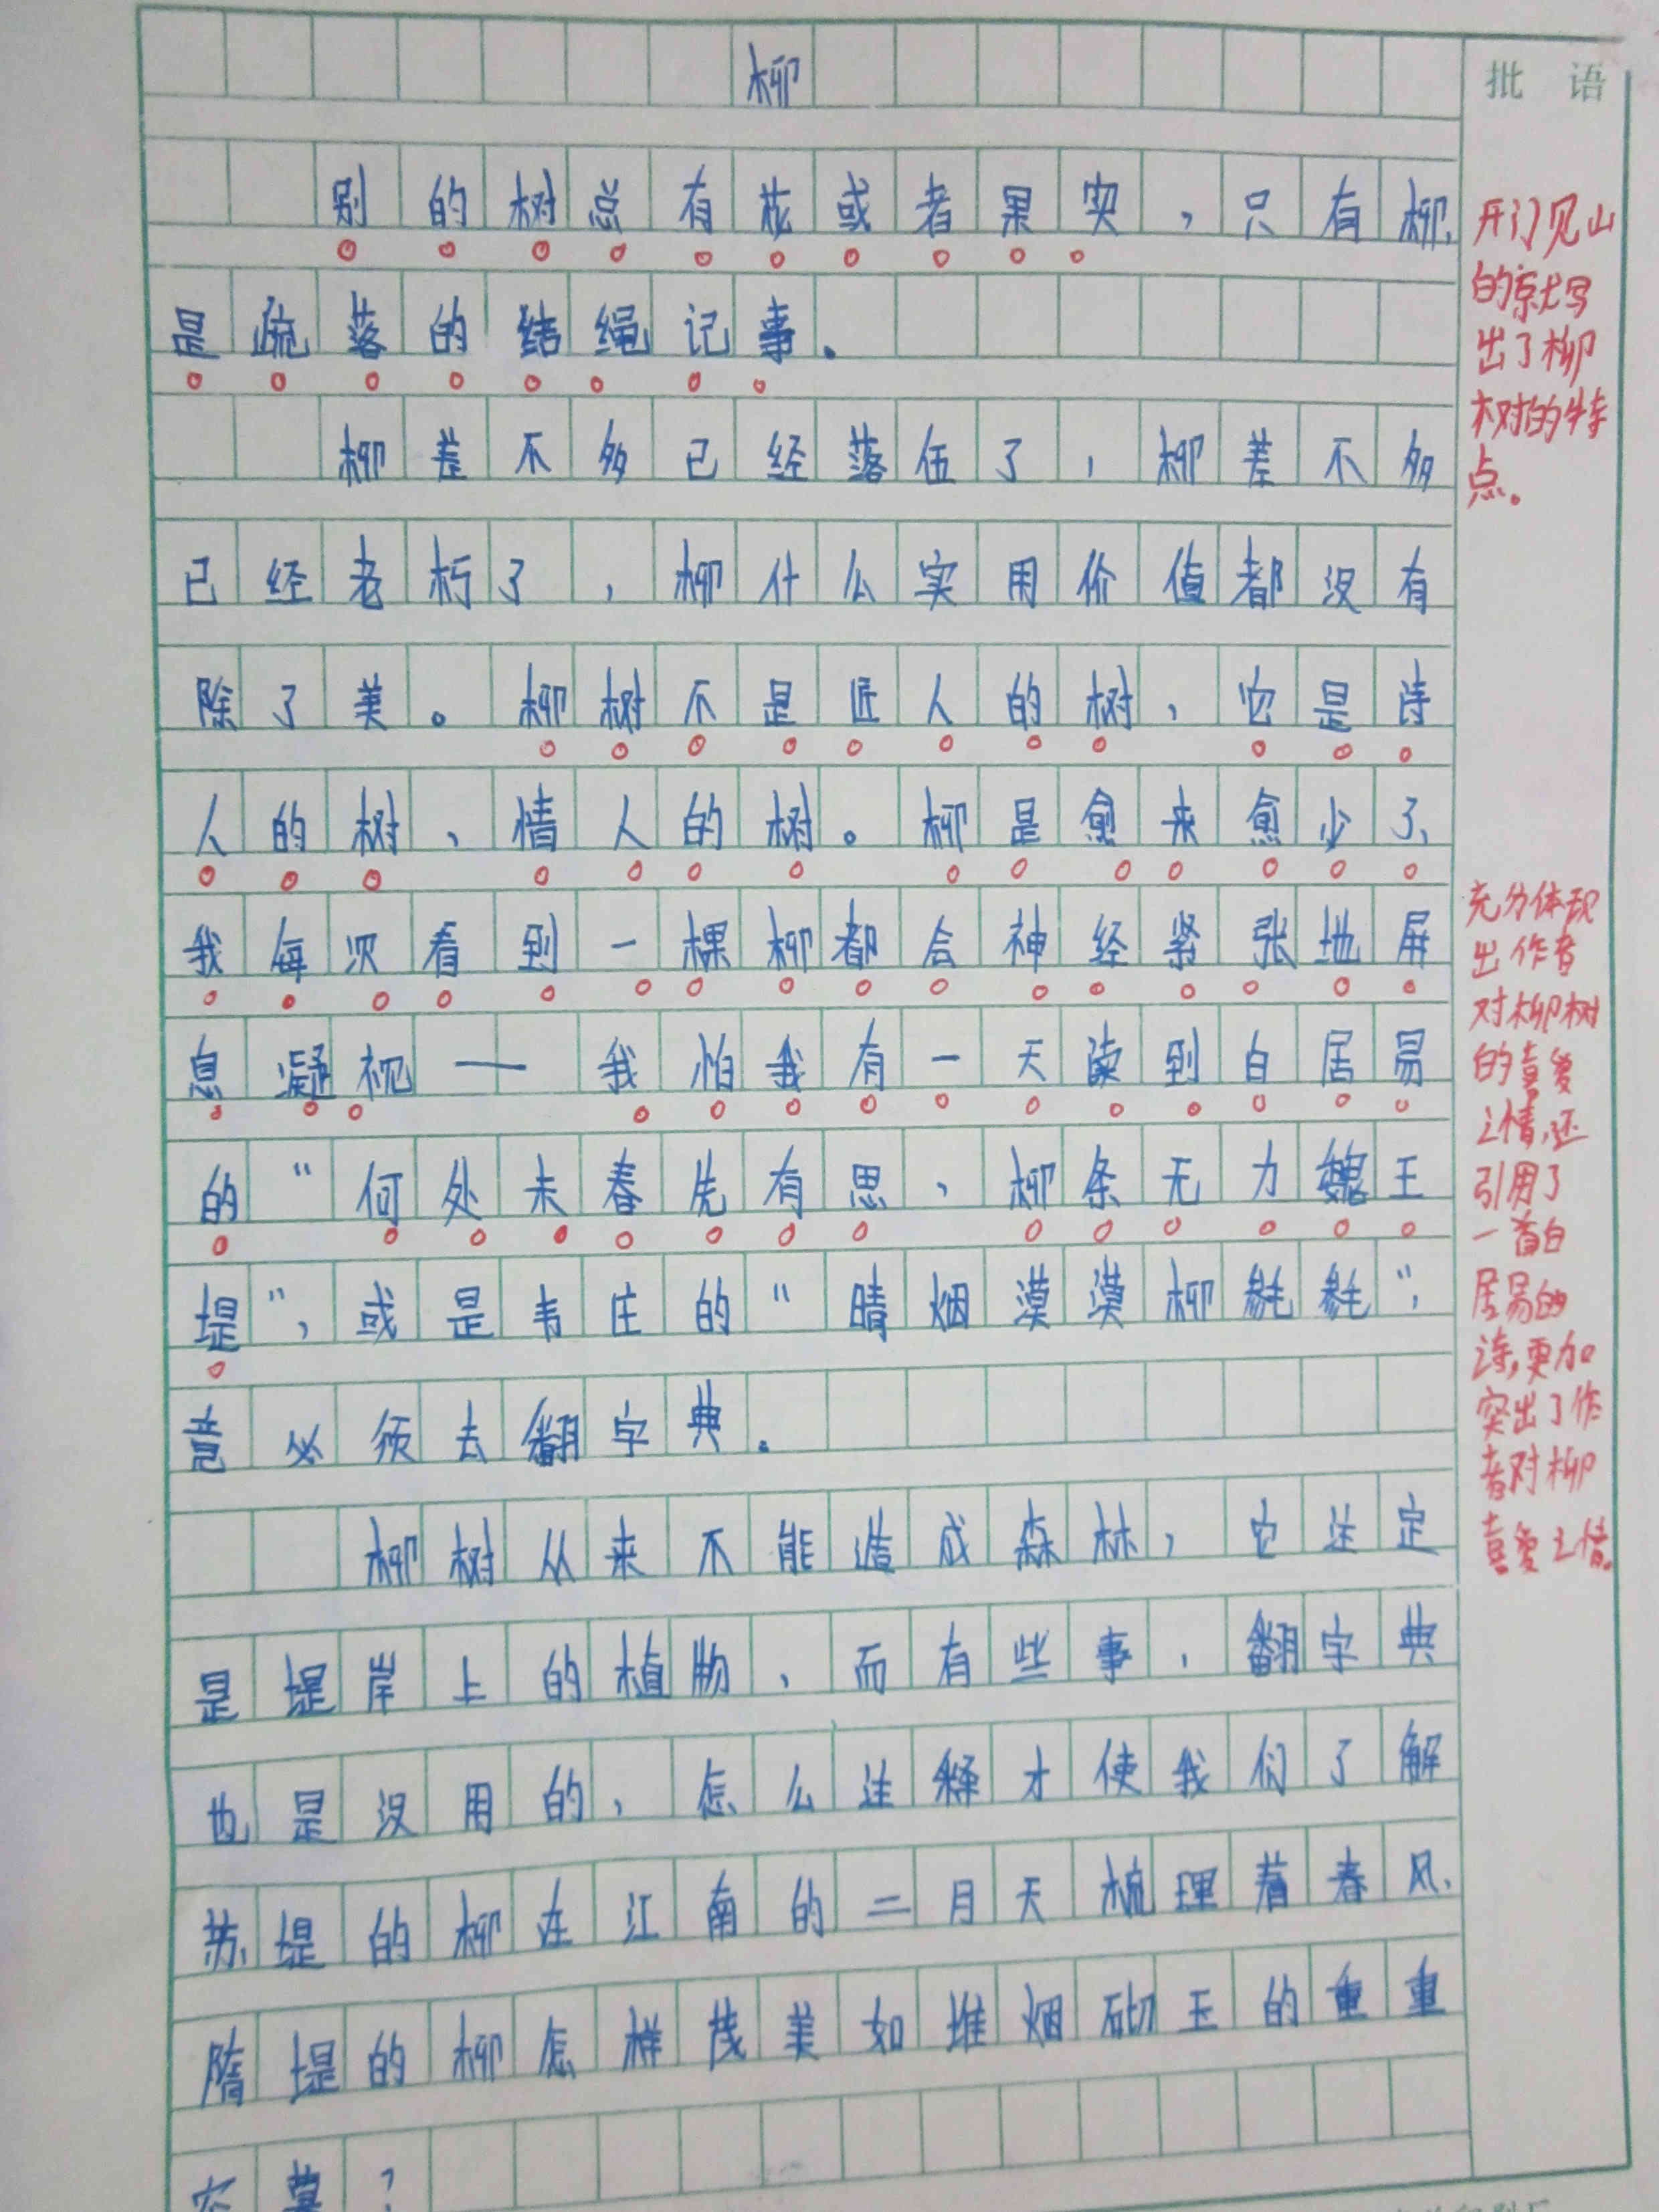 柳
批 语
别的树总有花或者果实,只有柳,
是疏落的结绳记事。
柳差不多已经落伍了,柳差不多
已经老朽了,柳什么实用价值都没有
除了美。柳树不是匠人的树,它是诗
人的树、情人的树。柳是愈来愈少了,
我每次看到一棵柳都会神经紧张地屏
息凝视——我怕我有一天读到白居易
的“何处未春先有思,柳条无力魏王
堤”,或是韦庄的“晴烟漠漠柳毵毵”,
竟必须去翻字典。
柳树从来不能造成森林,它注定
是堤岸上的植物,而有些事,翻字典
也是没用的,怎么注释才使我们了解
苏堤的柳在江南的二月天梳理着春风,
隋堤的柳怎样茂美如堆烟砌玉的重重
帘幕?
开门见山
的就写
出了柳
树的特
点。
充分体现
出作者
对柳树
的喜爱
之情,还
引用了
一首白
居易的
诗,更加
突出了作
者对柳
喜爱之情。